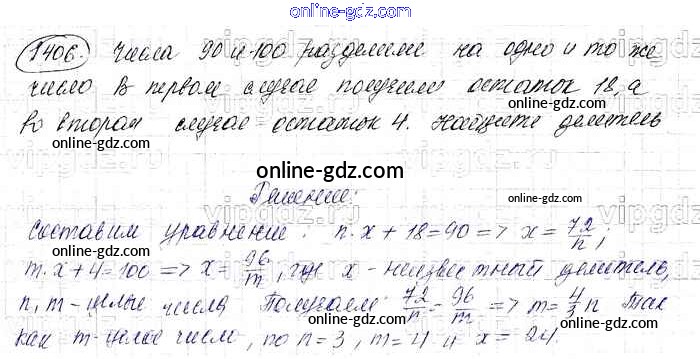 online-gdz.com
1406. Числа 90 и 100 разделили на одно и то же
число в первом случае получили остаток 18, а
во втором случае остаток 4. Найдите делитель
online-gdz.com
Решение:
Составим уравнение: n·x + 18 = 90 => x = 72/n;
m·x + 4 = 100 => x = 96/m, где x - неизвестный делитель,
n, m - целые числа. Получаем: 72/n = 96/m => m = 4/3 n Так
как m - целое число, то n = 3, m = 4 и x = 24.
online-gdz.com